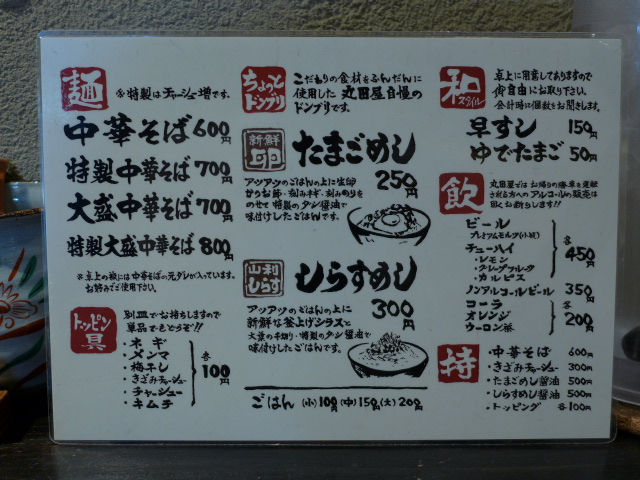 麺
※特製はチャーシュー増です。
中華そば 600円
特製中華そば 700円
大盛中華そば 700円
特製大盛中華そば 800円
※卓上の椀には中華そばの元ダレが入っています。
お好みでご使用下さい。
トッピン具
別皿でお持ちしますので
単品でもどうぞ!!
・ネギ
・メンマ
・梅干し
・きざみチャーシュー
・チャーシュー
・キムチ
各100円
ちょっとドンブリ
こだわりの食材をふんだんに
使用した丸田屋自慢の
ドンブリです。
新鮮卵 たまごめし
250円
アツアツのごはんの上に生卵
けずりお節・刻みネギ・刻みのりを
のせて特製のダシ醤油で
味付けしたごはんです。
しらす しらすめし
300円
アツアツのごはんの上に
新鮮な釜上げシラスと
大葉の千切り・特製のダシ醤油で
味付けしたごはんです。
ごはん (小)100円(中)150円(大)200円
和スタイル
卓上に用意してありますので
御自由にお取り下さい。
会計時に個数をお聞きします。
早すし 150円
ゆでたまご 50円
飲
丸田屋ではお帰りの際車を運転
される方へのアルコールの販売は
固くお断りします!!
ビール
プレミアムモルツ(小瓶)
チューハイ
・レモン
・グレープフルーツ
・カルピス
各450円
ノンアルコールビール 350円
コーラ
オレンジ
ウーロン茶
各200円
持
・中華そば 600円
・きざみチャーシュー 300円
・たまごめし醤油 500円
・しらすめし醤油 500円
・トッピング 各100円